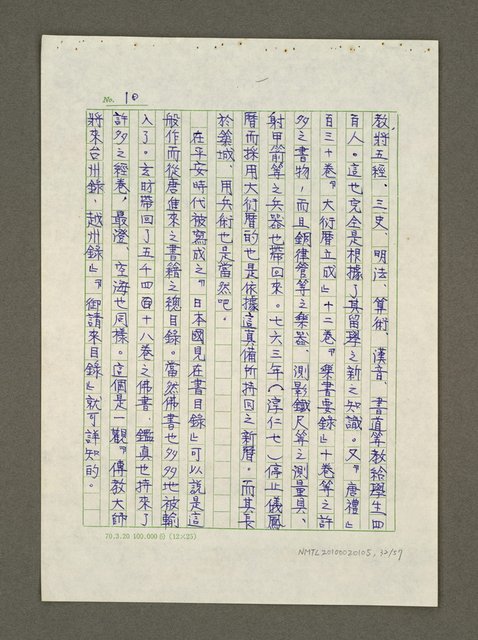 No. 10
教,將五經、三史、明法、算術、漢音、書道等教給學生四
百人。這也完全是根據了其留學之新之知識。又『唐禮』
百三十卷『大衍曆立成』十二卷『樂書要錄』十卷等之許
多之書物,而且銅律管等之樂器、測影鐵尺等之測量具、
射甲箭等之兵器也帶回來。七六三年(淳仁七)停止儀鳳
曆而採用大衍曆的也是依據這真備所持回之新曆。而其長
於築城、用兵術也是當然吧。
在平安時代被寫成之『日本國見在書目錄』可以說是這
般作而從唐進來之書籍之總目錄。當然佛書也多多地被輸
入了。玄昉帶回了五千四百十八卷之佛書,鑑真也持來了
許多之經卷,最澄、空海也同樣。這個是一觀『傳教大師
將來台州錄、越州錄』『御請來目錄』就可詳知的。
70.3.20 100.000份(12×25)
NMTL20100020105, 32/57